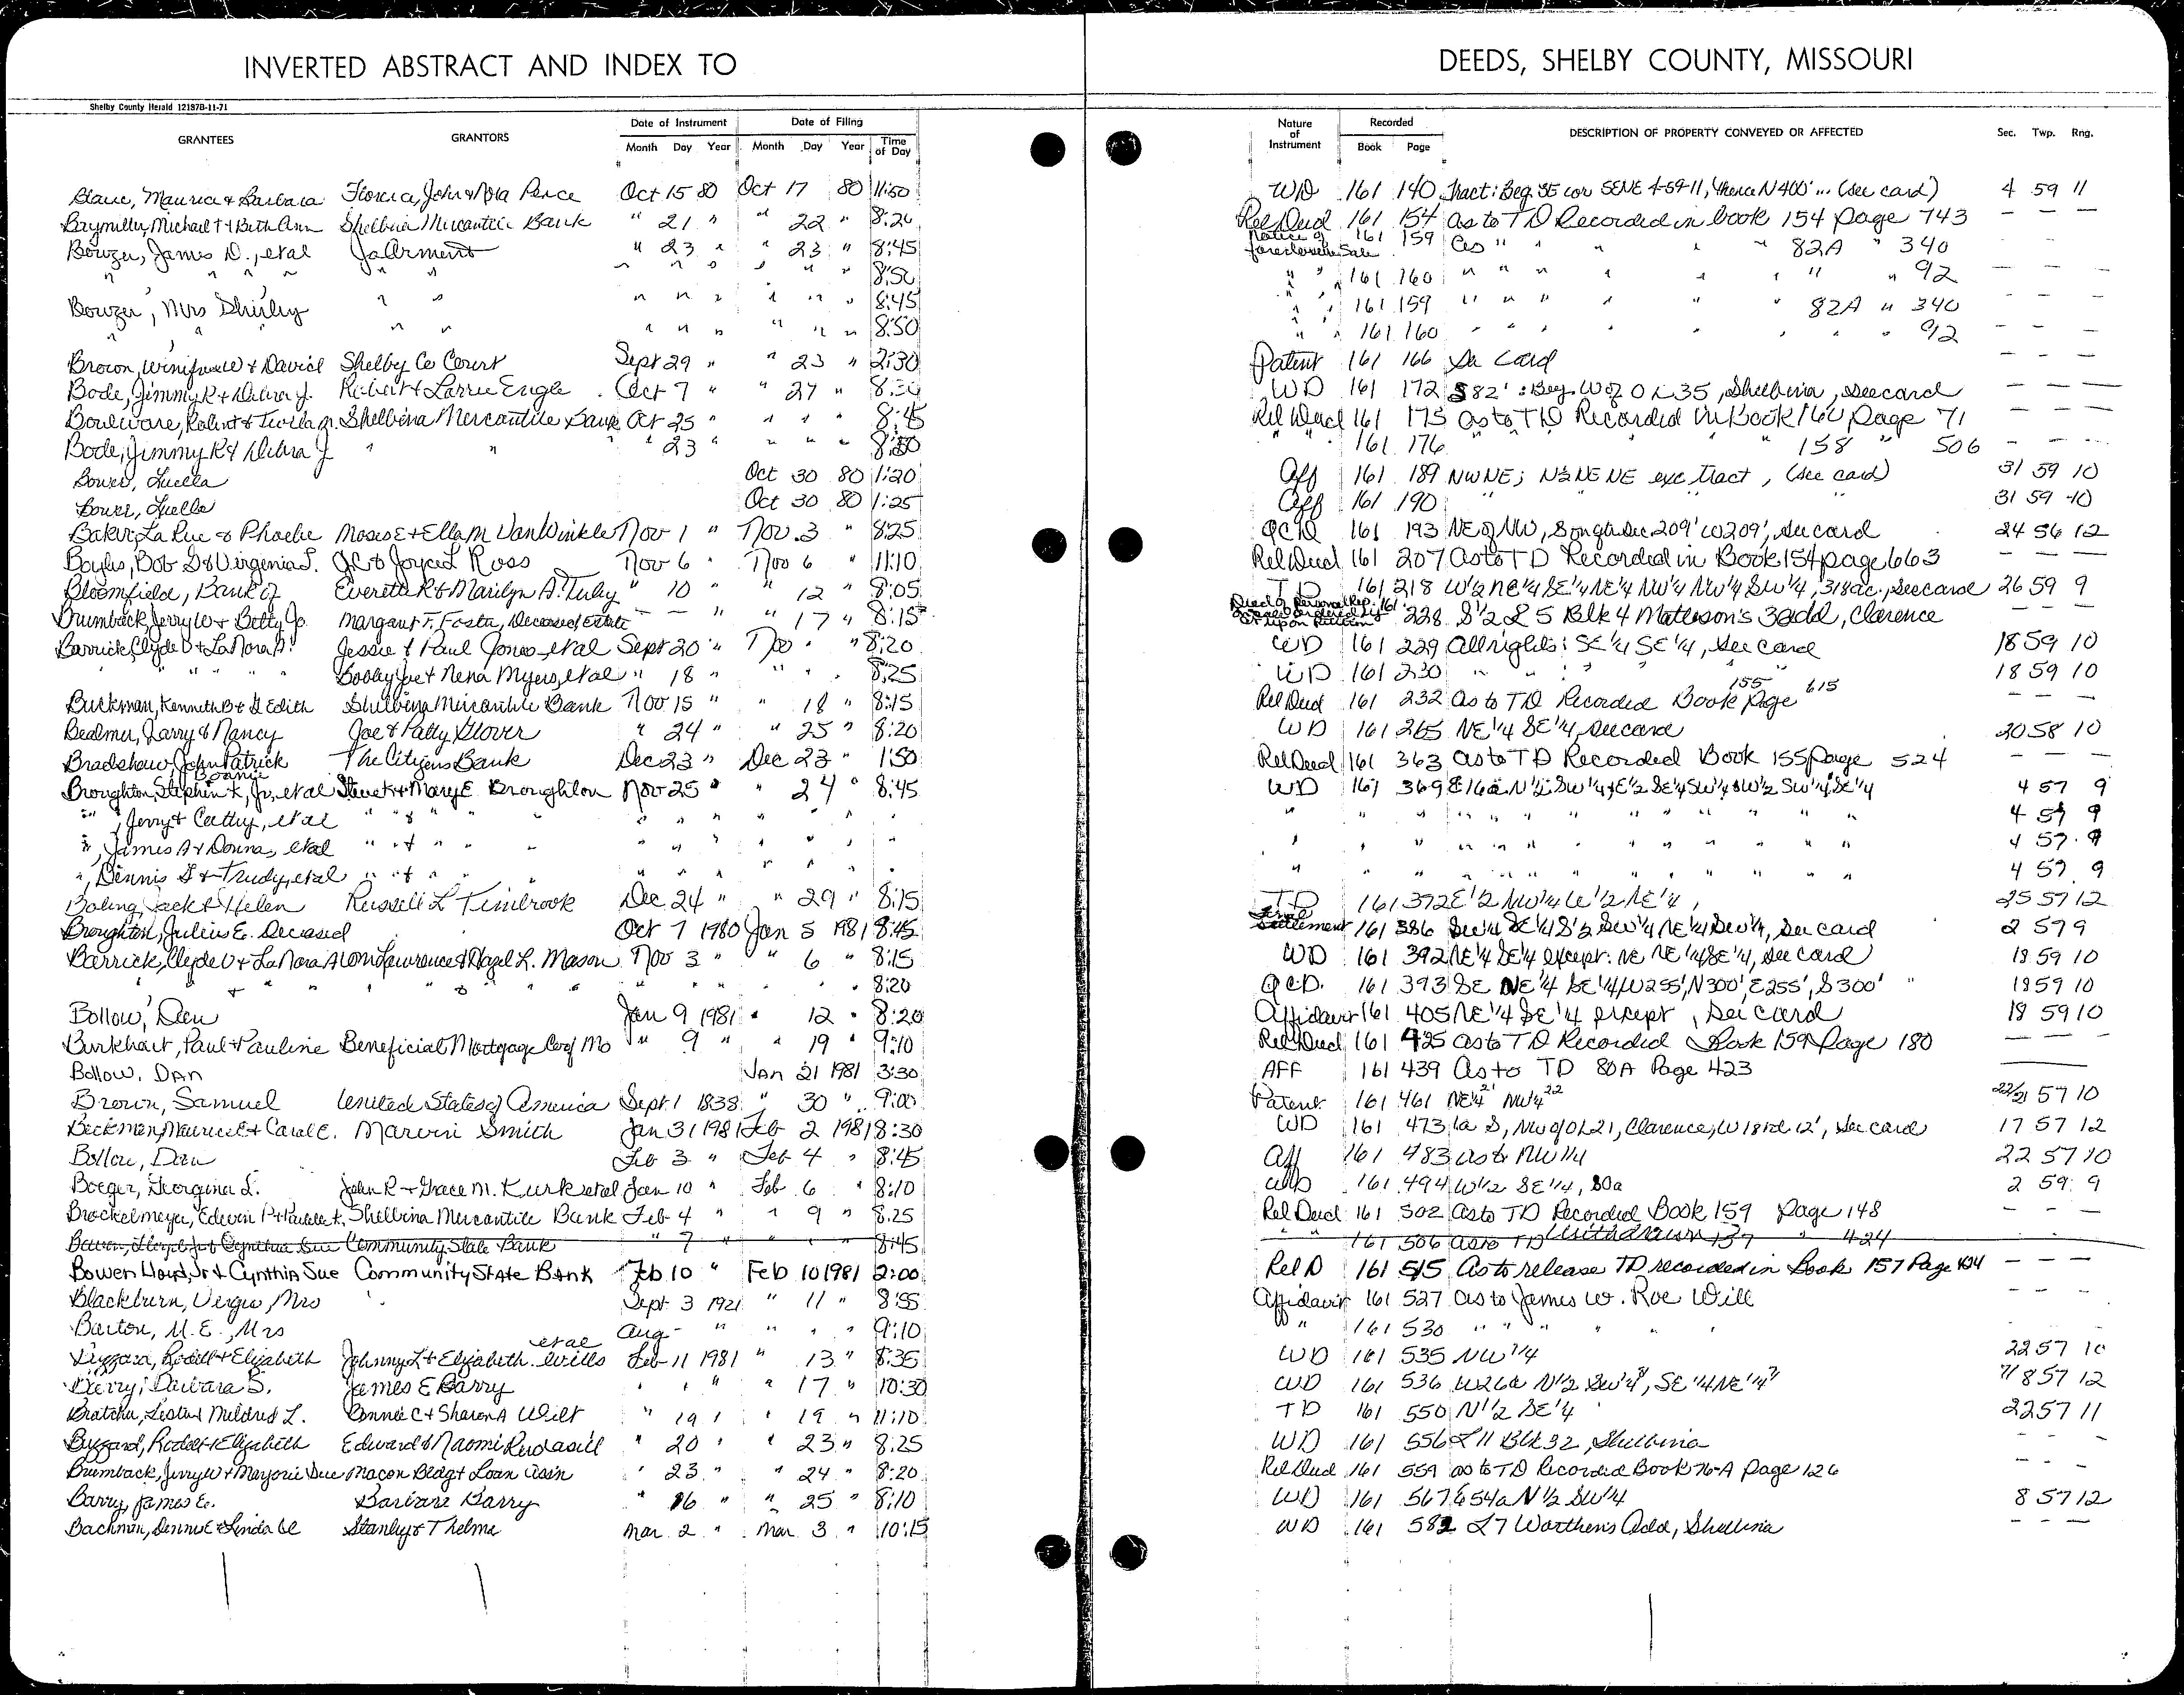 INVERTED ABSTRACT AND INDEX TO DEEDS, SHELBY COUNTY, MISSOURI
Shelby County Herald 12187B-11-71
GRANTEES GRANTORS Date of Instrument Date of Filing Nature of Instrument Recorded DESCRIPTION OF PROPERTY CONVEYED OR AFFECTED Sec. Twp. Rng.
Month Day Year Month Day Year Time of Day Book Page
Maurice & Barbara John & Pence Oct 15 80 Oct 17 80 11:50 WD 161 140 Tract: Beg. SE cor SENE 4-59-11, thence N 400' ... (see card) 4 59 11
Baymiller, Michael T & Beth Ann Shelbina Mercantile Bank " 21 " " 22 " 8:20 Rel Deed 161 154 as to TD Recorded in book 154 page 743 — — —
Bowzer, James D., etal " 23 " " 23 " 8:45 Notice of foreclosure Sale 161 159 as " " " " 82A " 340
" " " " " " " " " " " " 8:50 " " 161 160 " " " " " " " 92 — — —
Bowzer, Mrs Shirley " " " " " " " " 8:45 " " 161 159 " " " " " " 82A " 340 — — —
" " " " " " " " " " 8:50 " " 161 160 " " " " " " 92 — — —
Brown, & David Shelby Co Court Sept 29 " " 23 " 2:30 Patent 161 166 See Card — — —
Bode, Jimmy R & Debra J. Robert & Larrie Engle Oct 7 " " 27 " 8:30 WD 161 172 S 82' : Beg. W of O L 35, Shelbina, see card — — —
Bouleware, Robert & Twilla m. Shelbina Mercantile Bank Oct 25 " " " " 8:45 Rel Deed 161 175 as to TD Recorded in Book 160 page 71 — — —
Bode, Jimmy R & Debra J " " " 23 " " " " 8:50 " " 161 176 " " " " 158 " 506 — — —
Bower, Luella Oct 30 80 1:20 Aff 161 189 NWNE; N½ NE NE exc tract, (see card) 31 59 10
Bower, Luella Oct 30 80 1:25 Aff 161 190 " " " 31 59 10
Baker, La Rue & Phoebe Moses E & Ella M VanWinkle Nov 1 " Nov. 3 " 8:25 QCD 161 193 NE of NW, 209' W209', see card 24 56 12
Bayles, Bob D & Virginia S. & Joyce L Ross Nov 6 " Nov 6 " 11:10 Rel Deed 161 207 as to TD Recorded in Book 154 page 663 — — —
Bloomfield, Bank of Everett R & Marilyn A. Tuley " 10 " " 12 " 8:05 TD 161 218 W½ NE¼ SE¼ NE¼ NW¼ NW¼ SW¼, 318ac., see card 26 59 9
Brumback Jerry W & Betty Jo. Margaret F. Foster, Deceased Estate — — " " 17 " 8:15 Deed of Personal Rep. 161 228 S½ L 5 Blk 4 Matteson's 3 add, Clarence — — —
Barrick, Clyde V & LaNora A. Jessie & Paul Jones, etal Sept 20 " Nov " " 8:20 WD 161 229 All rights: SE¼ SE¼, see card 18 59 10
" " " " Bobby Joe & Nena Myers, etal " 18 " " " " 8:25 WD 161 230 " " " " 18 59 10
Buckman, Kenneth B & G Edith Shelbina Mercantile Bank Nov 15 " " 18 " 8:15 Rel Deed 161 232 as to TD Recorded Book 155 page 615 — — —
Bealmer, Larry & Nancy Joe & Patty Glover " 24 " " 25 " 8:20 WD 161 265 NE¼ SE¼, see card 20 58 10
Bradshaw, John Patrick The Citizens Bank Dec 23 " Dec 23 " 1:50 Rel Deed 161 363 as to TD Recorded Book 155 page 524 — — —
Broughton, Stephen K, Jr, etal Bonnie & Mary E Broughton Nov 25 " " 24 " 8:45 WD 161 369 E16a N½ SW¼ & E½ SE¼ SW¼ & W½ SW¼ SE¼ 4 57 9
" , Jerry & Cathy, etal " " " " " " " " " " " " " " " " " " 4 57 9
" , James A & Donna, etal " " " " " " " " " " " " " " " " " " 4 57 9
" , Dennis L & Trudy, etal " " " " " " " " " " " " " " " " " " 4 57 9
Boling, Jack & Helen Russell L Timbrook Dec 24 " " 29 " 8:15 TD 161 372 E½ NW¼ W½ NE¼, 25 57 12
Broughton, Julius E. Deceased Oct 7 1980 Jan 5 1981 8:45 Final Settlement 161 386 SW¼ SE¼ S½ SW¼ NE¼ SW¼, see card 2 57 9
Barrick, Clyde V & LaNora A Lawrence & Hazel L. Mason Nov 3 " " 6 " 8:15 WD 161 392 NE¼ SE¼ except: NE NE¼ SE¼, see card 18 59 10
" & " " " & " " " " " " " 8:20 QCD. 161 393 SE NE¼ SE¼ W255', N300', E255', S300' " 18 59 10
Bollow, Dan Jan 9 1981 " 12 " 8:20 Affidavit 161 405 NE¼ SE¼ except, see card 18 59 10
Burkhart, Paul & Pauline Beneficial Mortgage Co of Mo " 9 " " 19 " 9:10 Rel Deed 161 425 as to TD Recorded Book 159 Page 180 — — —
Bollow, DAN Jan 21 1981 3:30 AFF 161 439 As to TD 80A Page 423
Brown, Samuel United States of America Sept 1 1838 " 30 " 9:00 Patent 161 461 NE¼ 21 NW¼ 22 22/21 57 10
Beckmen, Maurice E & Carol E. Marvin Smith Jan 31 1981 Feb 2 1981 8:30 WD 161 473 1a S, NW of OL21, Clarence, W 18rd 12', see card 17 57 12
Bollow, Dan Feb 3 " Feb 4 " 8:45 Aff 161 483 as to NW¼ 22 57 10
Boeger, Georgina L. John R & Grace M. Kirk etal Jan 10 " Feb 6 " 8:10 WD 161 494 W½ SE¼, 80a 2 59 9
Brockelmeyer, Edwin P & Shelbina Mercantile Bank Feb 4 " " 9 " 8:25 Rel Deed 161 502 as to TD Recorded Book 159 page 148 — — —
Bowen, Lloyd Jr & Cynthia Sue Community State Bank " 7 " " " 8:45 " " 161 506 as to TD Withdrawn 157 " 424
Bowen Lloyd, Jr & Cynthia Sue Community State Bank Feb 10 " Feb 10 1981 2:00 Rel D 161 515 As to release TD recorded in Book 157 Page 424 — — —
Blackburn, Virgie, Mrs Sept 3 1921 " 11 " 8:55 Affidavit 161 527 as to James W. Roe Will — — —
Barton, M. E., Mrs Aug - " " " " 9:10 " 161 530 " " " " " " — — —
Buzzard, Rodell & Elizabeth Johnny L & Elizabeth Wills etal Feb 11 1981 " 13 " 8:35 WD 161 535 NW¼ 22 57 10
Barry, Barbara S. James E Barry " " " " 17 " 10:30 WD 161 536 W26a N½ SW¼ 8, SE¼ NE¼ 7 7/8 57 12
Bratcher, Lester & Mildred L. Connie C & Sharon A Wilt " 19 " " 19 " 11:10 TD 161 550 N½ SE¼ 22 57 11
Buzzard, Rodell & Elizabeth Edward & Naomi Rudasill " 20 " " 23 " 8:25 WD 161 556 L 11 Blk 32, Shelbina — — —
Brumback, Jerry W & Marjorie Sue Macon Bldg & Loan Assn " 23 " " 24 " 8:20 Rel Deed 161 559 as to TD Recorded Book 76-A page 126 — — —
Barry, James E. Barbara Barry " 16 " " 25 " 8:10 WD 161 567 E54a N½ SW¼ 8 57 12
Bachman, Dennis E & Linda Stanley & Thelma Mar. 2 " Mar. 3 " 10:15 WD 161 582 L7 Worthen's Add, Shelbina — — —